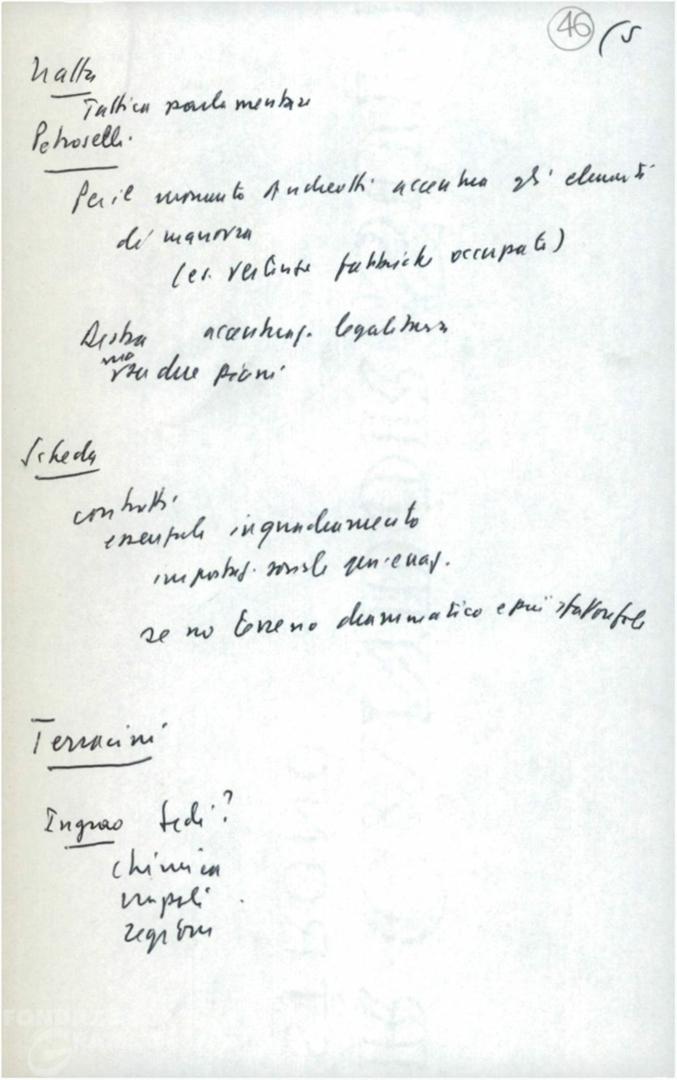 46 (5
Natta
Tattica parlamentare
Petroselli.
Per il momento Andreotti accentua gli elementi
di manovra
(es. vertenze fabbriche occupate)
Destra accentuaz. legalitaria
ma su due piani
Scheda
contratti
essenziale inquadramento
impostaz. sociale
se no terreno drammatico e più sfavorevole
Terracini
Ingrao Sedi?
chimica
napoli
regioni
FONDAZ